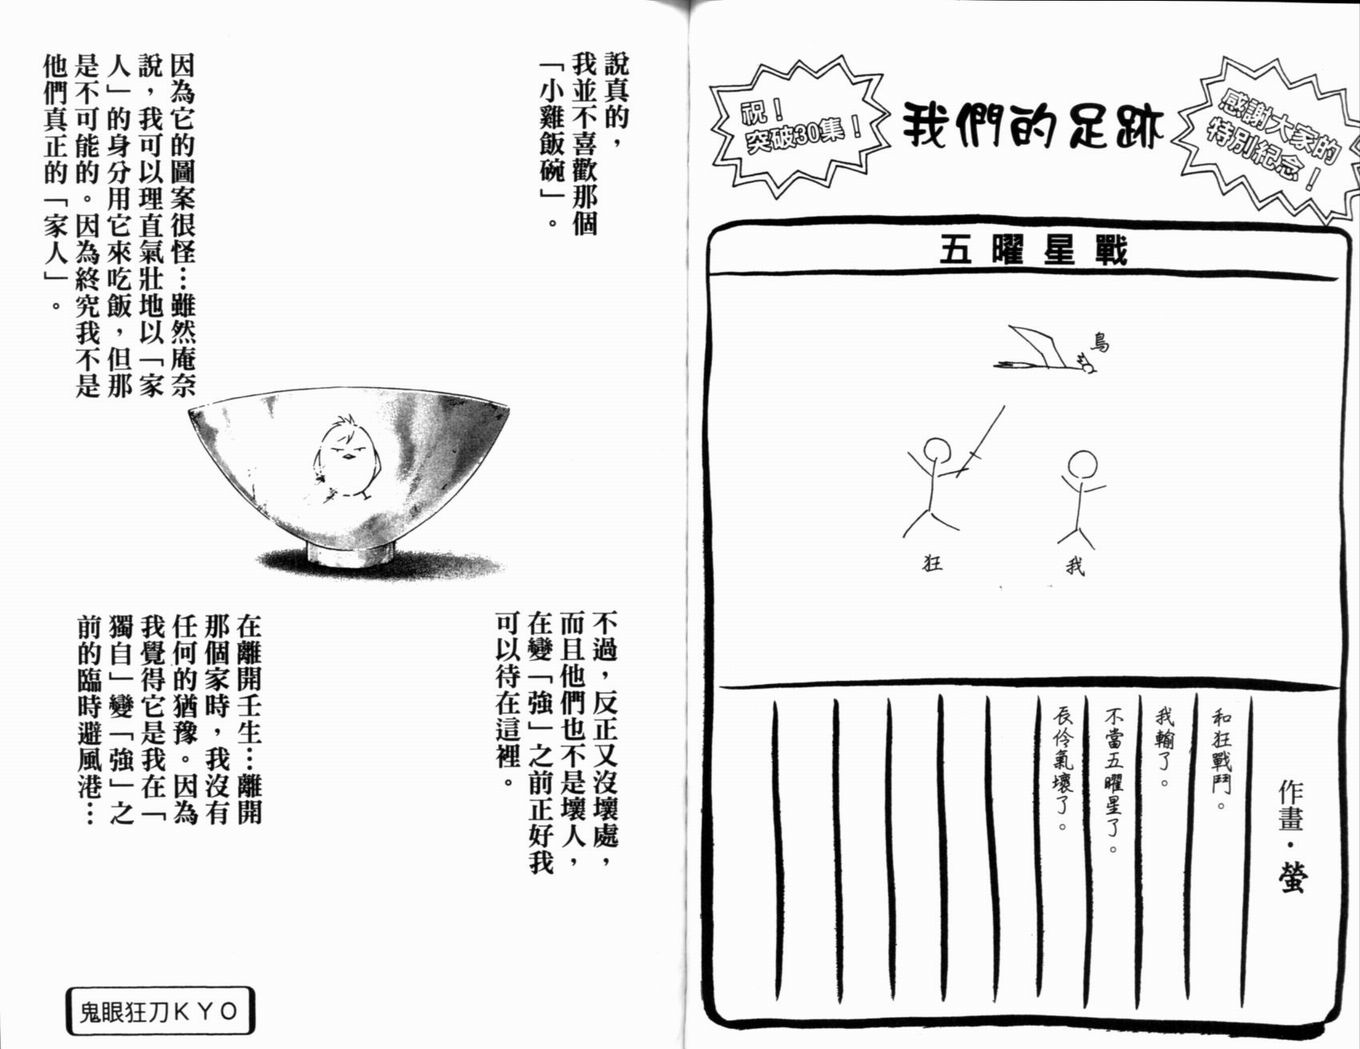 感謝大家的
特別紀念！
我們的足跡
祝！
突破30集！
五曜星戰
鳥
狂
我
作畫・螢
和狂戰鬥。
我輸了。
不當五曜星了。
辰伶氣壞了。
說真的，
我並不喜歡那個
「小雞飯碗」。
因為它的圖案很怪…雖然庵奈
說，我可以理直氣壯地以「家
人」的身分用它來吃飯，但那
是不可能的。因為終究我不是
他們真正的「家人」。
不過，反正又沒壞處，
而且他們也不是壞人，
在變「強」之前正好我
可以待在這裡。
在離開壬生…離開
那個家時，我沒有
任何的猶豫。因為
我覺得它是我在「
獨自」變「強」之
前的臨時避風港…
鬼眼狂刀KYO